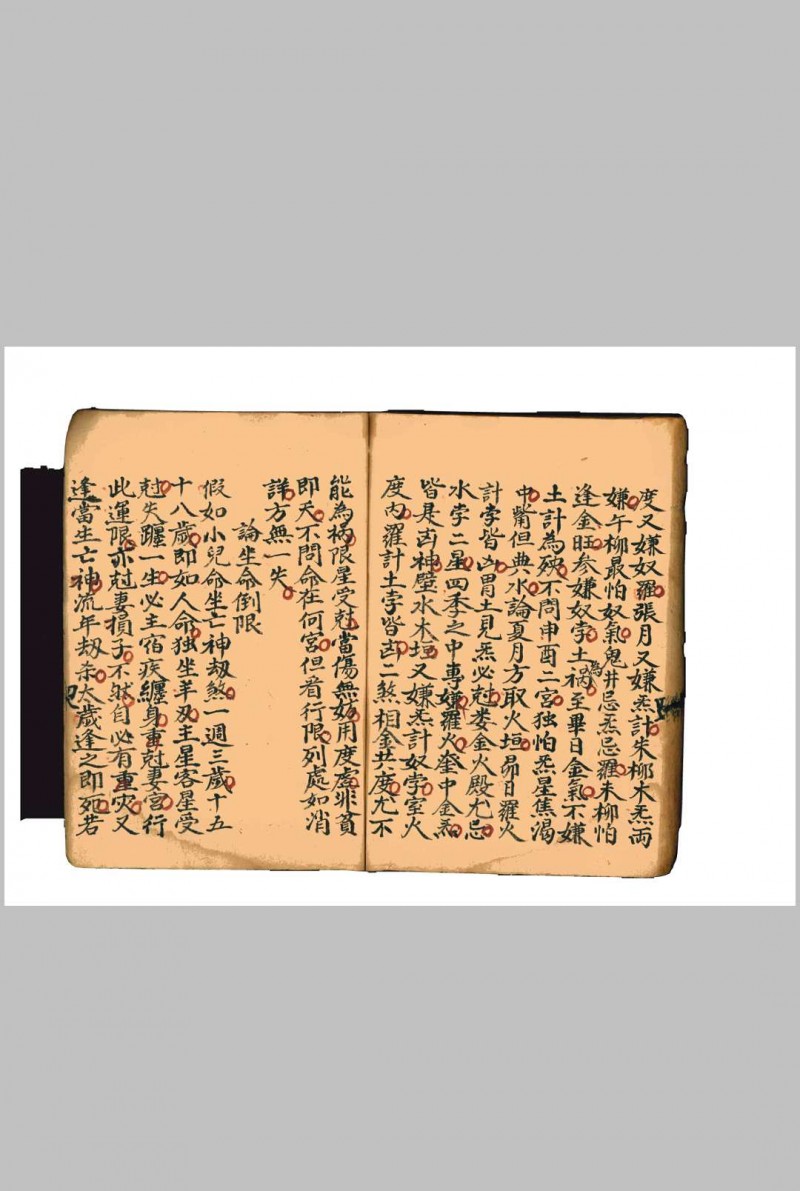 度又嫌奴羅張月又嫌炁計朱柳木炁両
嫌午柳最怕奴氣鬼井忌炁忌羅未柳怕
逢金旺参嫌奴孛土為祸至畢日金氣不嫌
土計為殃不問申酉二宮独怕炁星焦渴
中觜但典水論夏月方取火垣昴日羅火
計孛皆凶胃土見炁必尅娄金火殿尤忌
水孛二星四季之中專嫌羅火奎中金炁
皆是凶神壁水木垣又嫌炁計奴孛室火
度内羅計土孛皆凶二煞相金共度尤不
能為祸限星受尅當傷無妨用度虚非貧
即夭不問命在何宮但看行限列處如消
詳方無一失
論坐命倒限
假如小兒命坐亡神刼煞一週三歲十五
十八歲即如人命独坐羊刄主星客星受
尅失躔一生必主宿疾纏身重尅妻宮行
此運限亦尅妻損子不然自必有重灾又
逢當生亡神流年刼杀大歲逢之即死若